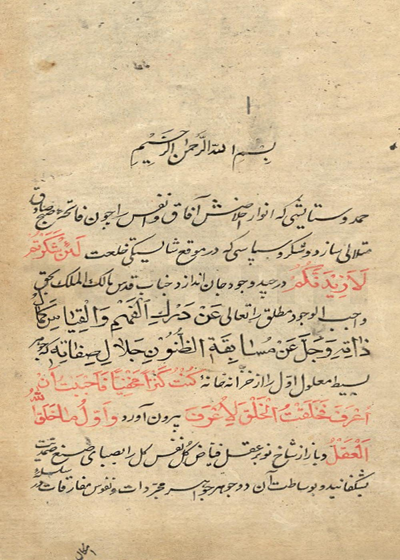 بسم الله الرحمن الرحیم
حمد و ستایشی که انوار اخلاصش آفاق و انفس را چون فاتحهٔ صبح صادق
متلالی سازد و شکر و سپاسی که در موقع شایستگی خلعت لَئِنْ شَكَرْتُمْ
لَاَزِیدَنَّكُمْ در جید وجود جان اندازد جناب قدس مالک الملک بحق
واجب الوجود مطلق را تعالی عَنْ دَرْكِ الْفَهْمِ وَالْقِیاسِ
ذاته وَجَلَّ عَنْ مسابقة الظُّنُونِ جَلَالُ صِفَاتِهِ که
بسیط معلول اول را از خزانه خانهٔ كُنْتُ كَنْزًا مَخْفِیًّا فَاَحْبَبْتُ اَنْ
اُعْرَفَ فَخَلَقْتُ الْخَلْقَ لِاُعْرَفَ بیرون آورد وَ اَوَّلُ مَا خَلَقَ اللهُ
الْعَقْلُ و باز از شاخ نوبر عقل فیاض گل نفس کل را بصبای صنع صمدیت
بشکفانید و بوساطت آن دو جوهر جواهر مجردات و نفوس مفارقات